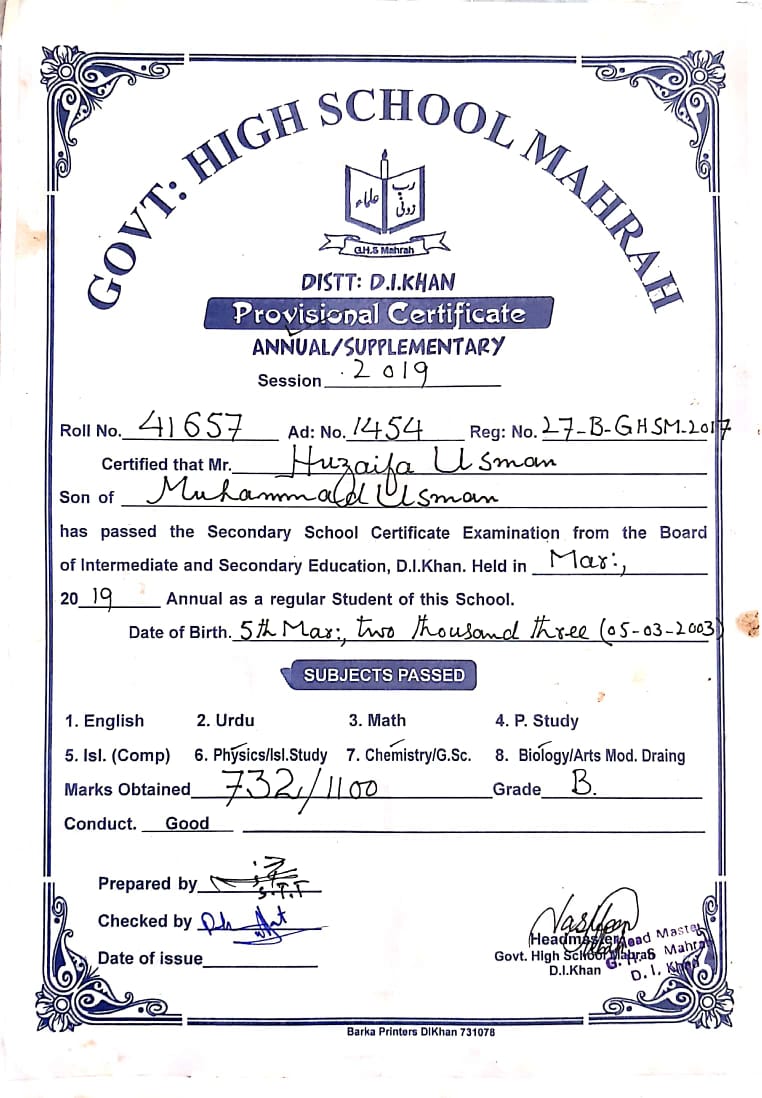 GOVT: HIGH SCHOOL MAHRAH
رب زدنی علماء
G.H.S Mahrah
DISTT: D.I.KHAN
Provisional Certificate
ANNUAL/SUPPLEMENTARY
Session 2019
Roll No. 41657 Ad: No. 1454 Reg: No. 27-B-GHSM-2017
Certified that Mr. Huzaifa Usman
Son of Muhammald Usman
has passed the Secondary School Certificate Examination from the Board
of Intermediate and Secondary Education, D.I.Khan. Held in Mar:,
20 19 Annual as a regular Student of this School.
Date of Birth. 5th Mar:, two thousand three (05-03-2003)
SUBJECTS PASSED
1. English 2. Urdu 3. Math 4. P. Study
5. Isl. (Comp) 6. Physics/Isl.Study 7. Chemistry/G.Sc. 8. Biology/Arts Mod. Draing
Marks Obtained 732/1100 Grade B.
Conduct. Good
Prepared by S.T.T
Checked by
Date of issue
Headmaster
Govt. High School Mahrah
D.I.Khan
Head Master
G.H.S Mahrah
D. I. Khan
Barka Printers DIKhan 731078